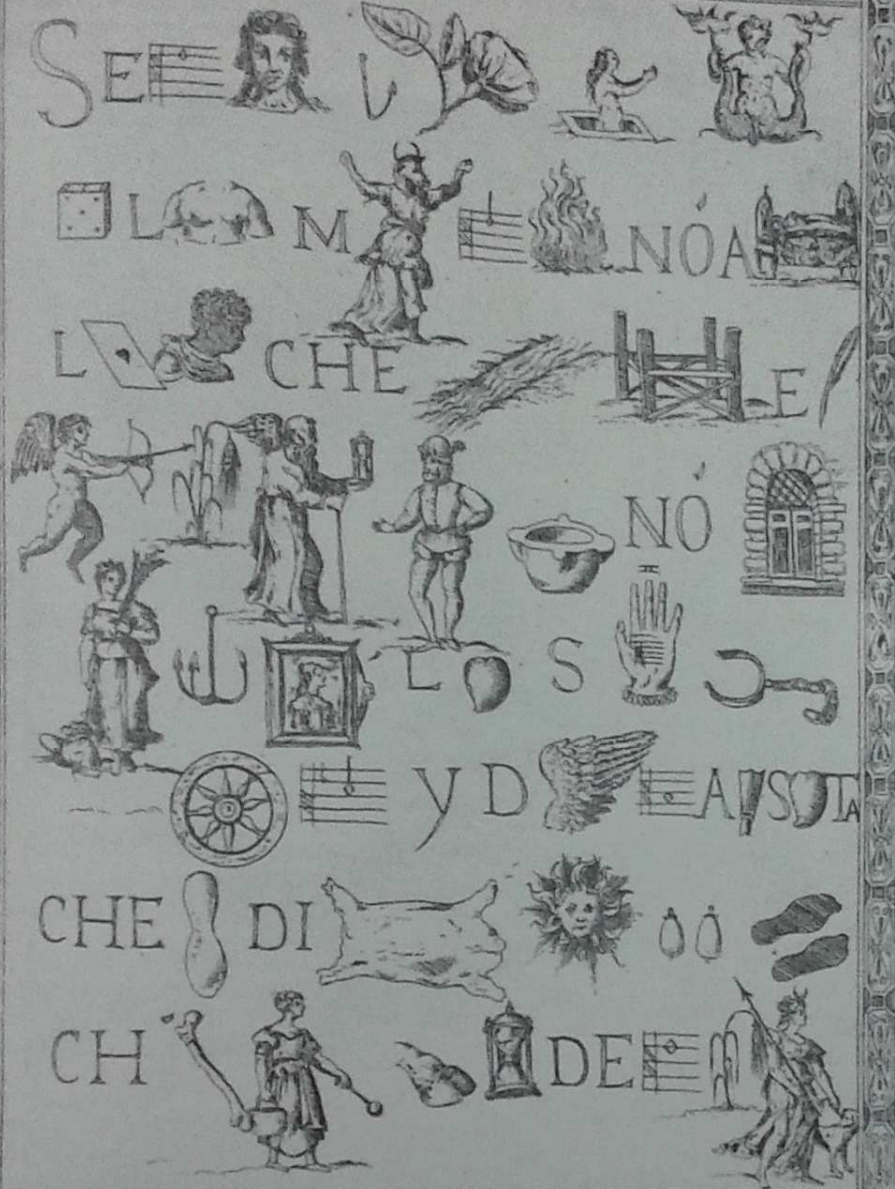 SE
L M NÓ A
L CHE E
NÓ
L S
Y D A S TA
CHE DI
CH' DE